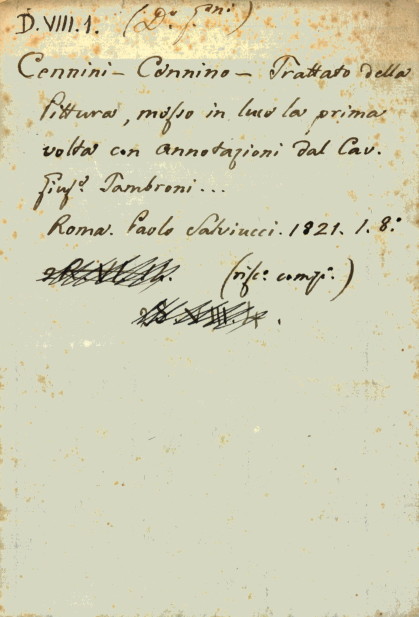 D.VIII.1. (D.º G.ni)
Cennini – Cennino – Trattato della
Pittura, messo in luce la prima
volta con annotazioni dal Cav.
Gius.e Tambroni...
Roma. Paolo Salviucci. 1821. 1. 8.º
(risc.º comp.º)